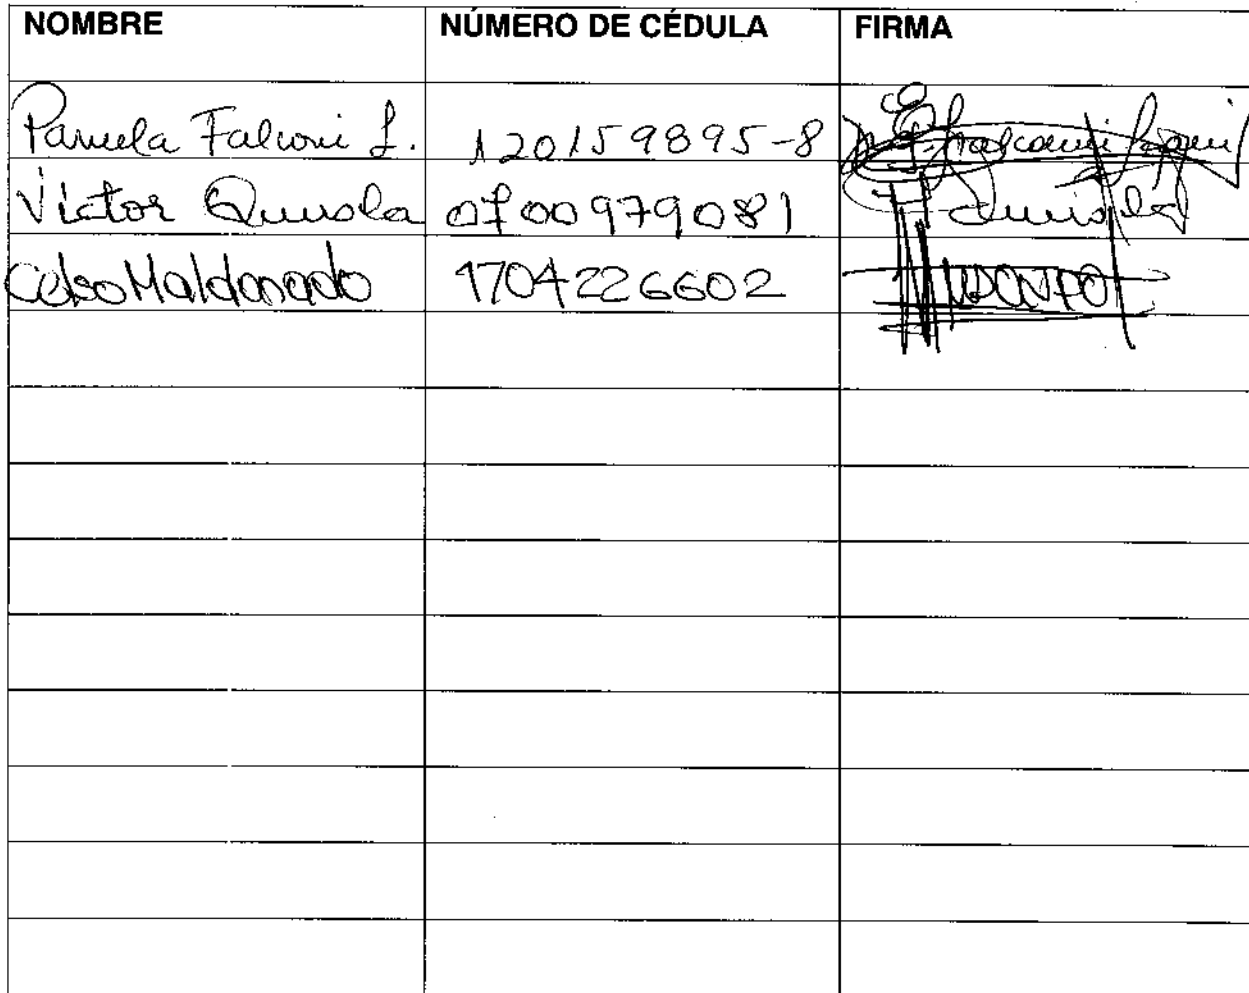 NOMBRE NÚMERO DE CÉDULA FIRMA
Pamela Falconi L. 120159895-8
Víctor Quirola 0700979081
Celso Maldonado 1704226602